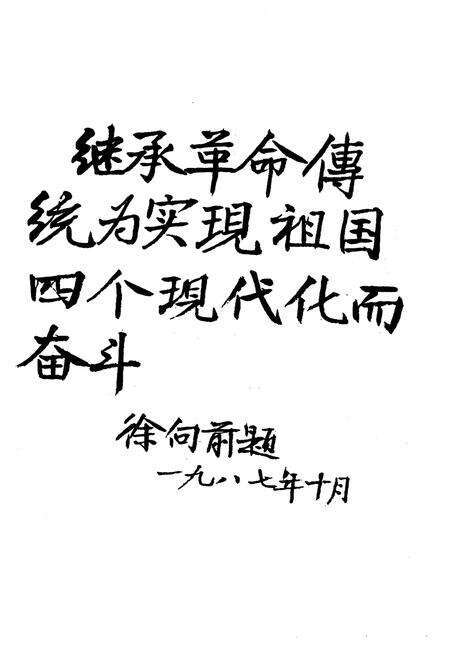 继承革命傳
统为实現祖国
四个現代化而
奋斗
徐向前题
一九八七年十月